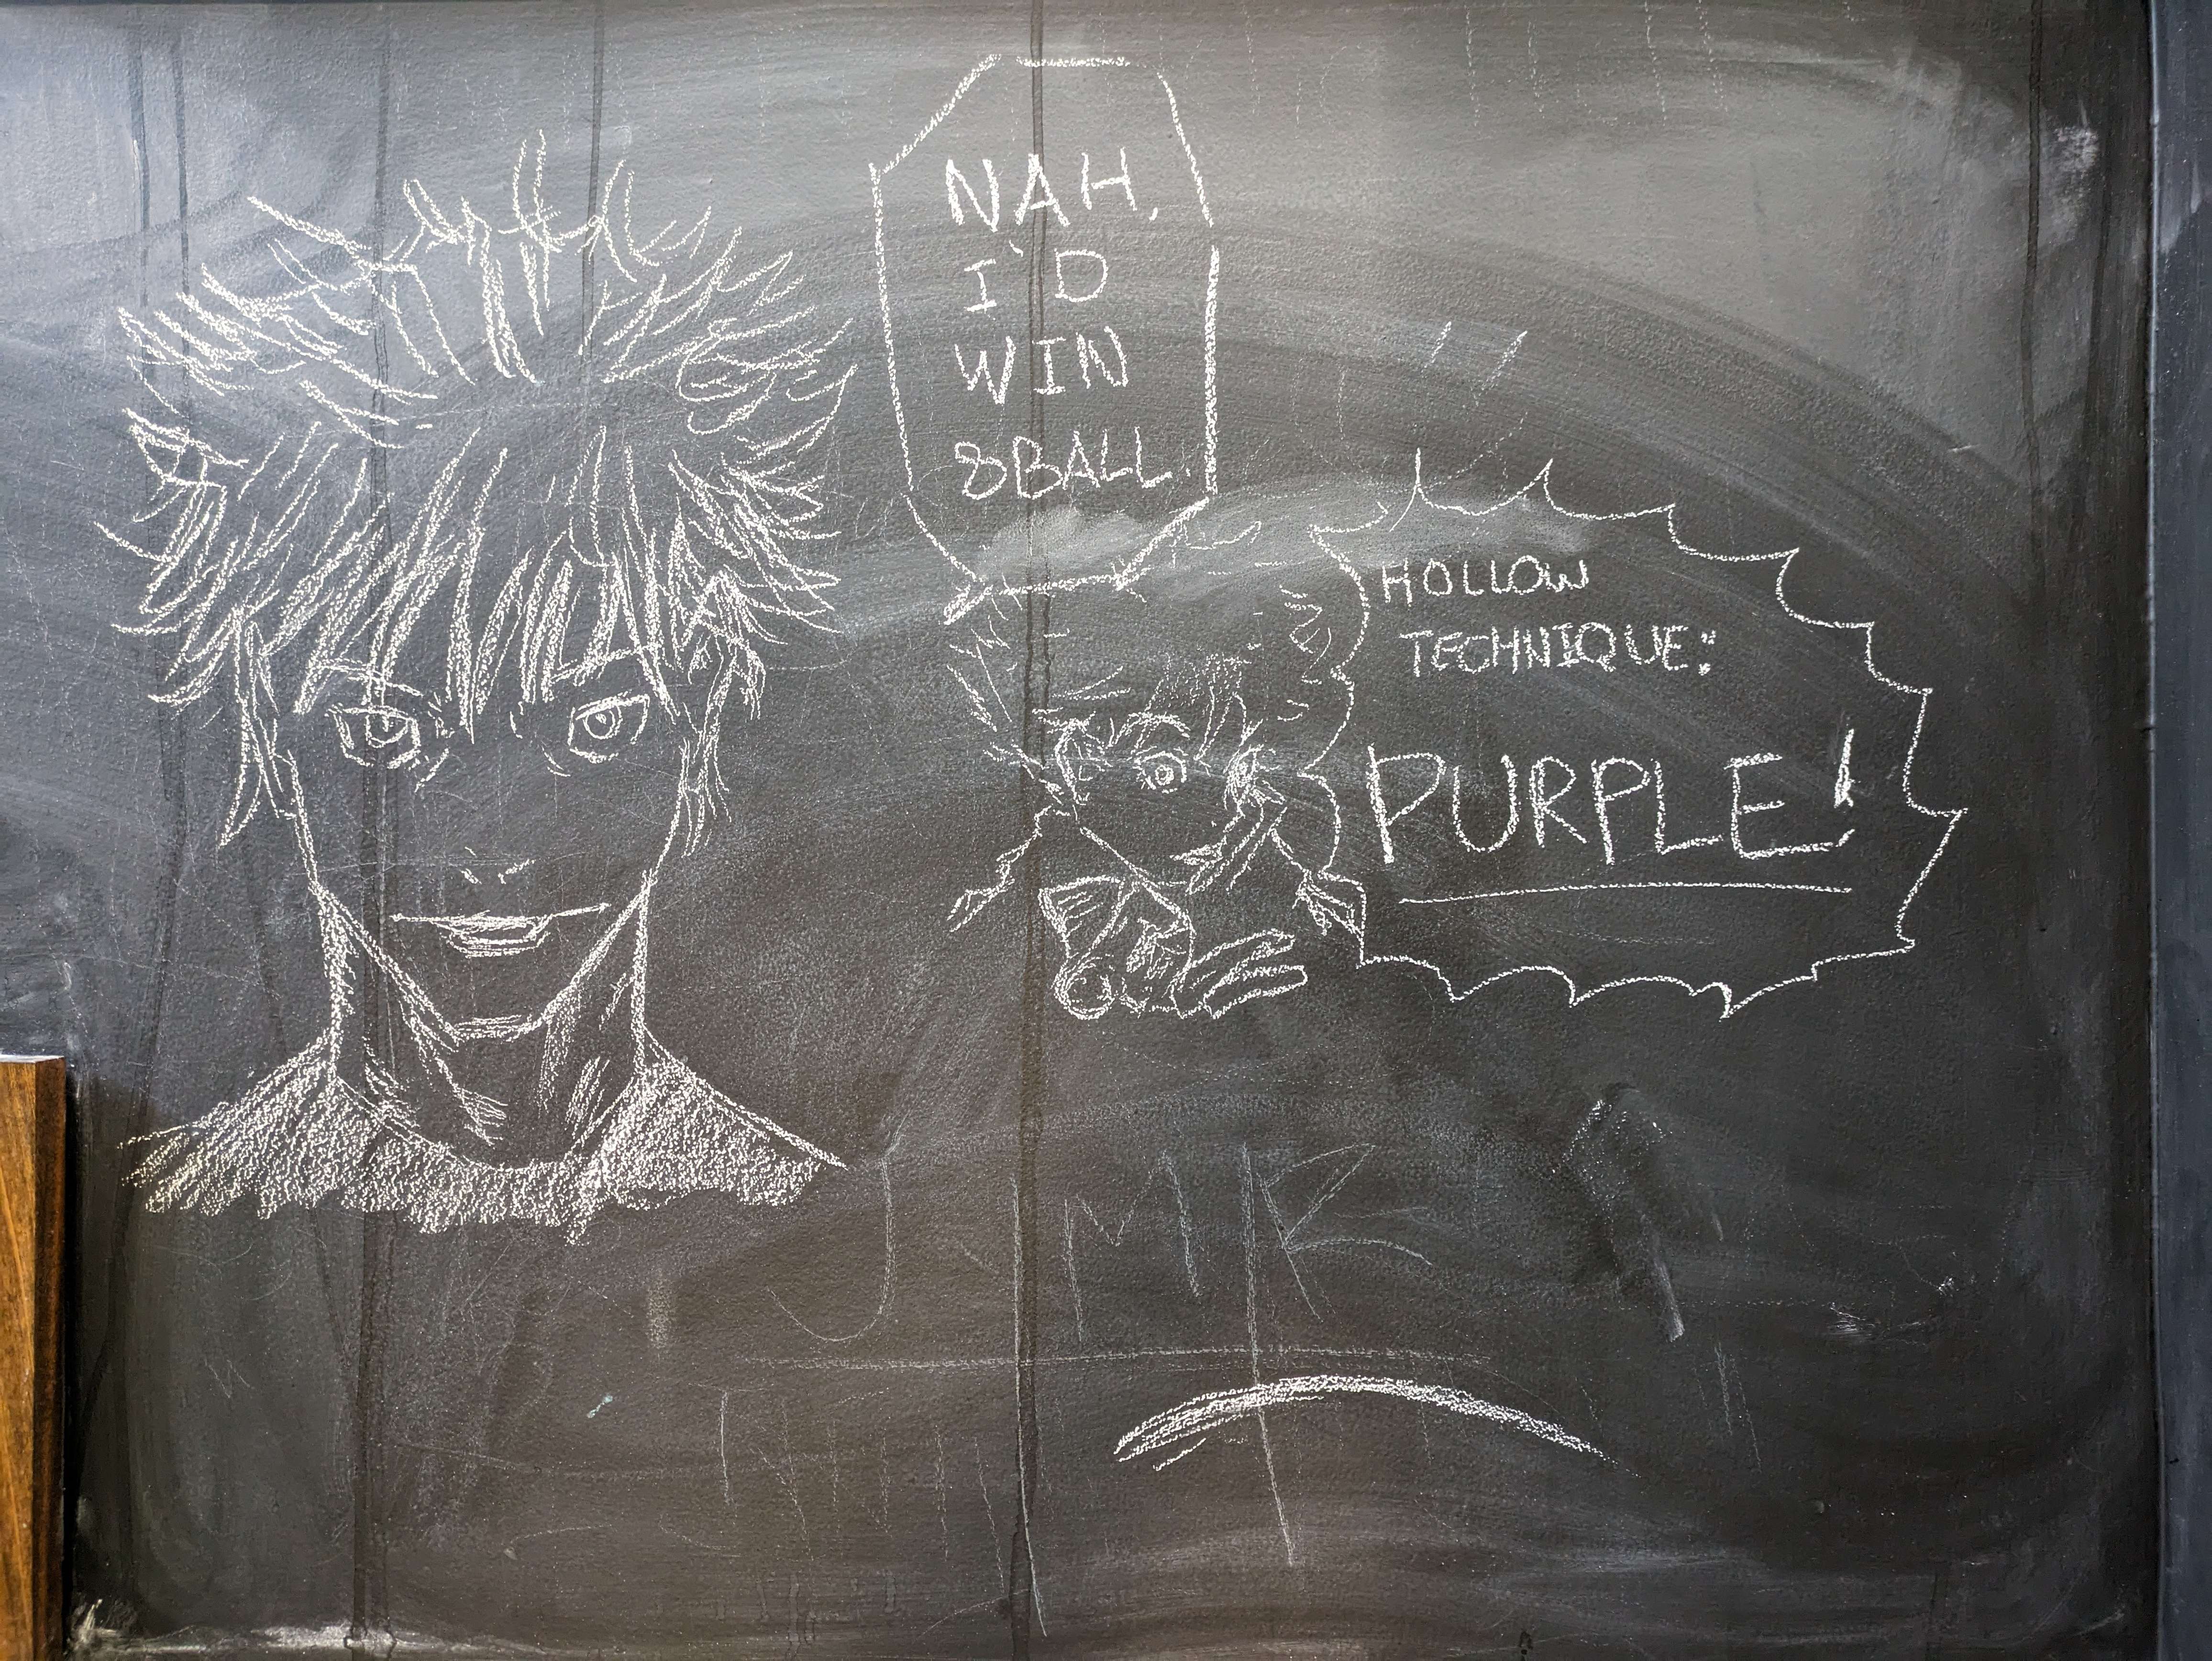 NAH,
I'D
WIN
8BALL.
HOLLOW
TECHNIQUE:
PURPLE!
J MK